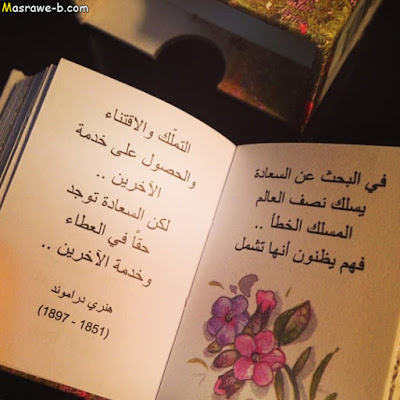 Masrawe-b.com
في البحث عن السعادة
يسلك نصف العالم
المسلك الخطأ ..
فهم يظنون أنها تشمل
التملّك والاقتناء
والحصول على خدمة
الآخرين ..
لكن السعادة توجد
حقاً في العطاء
وخدمة الآخرين ..
هنري دراموند
(1851 - 1897)